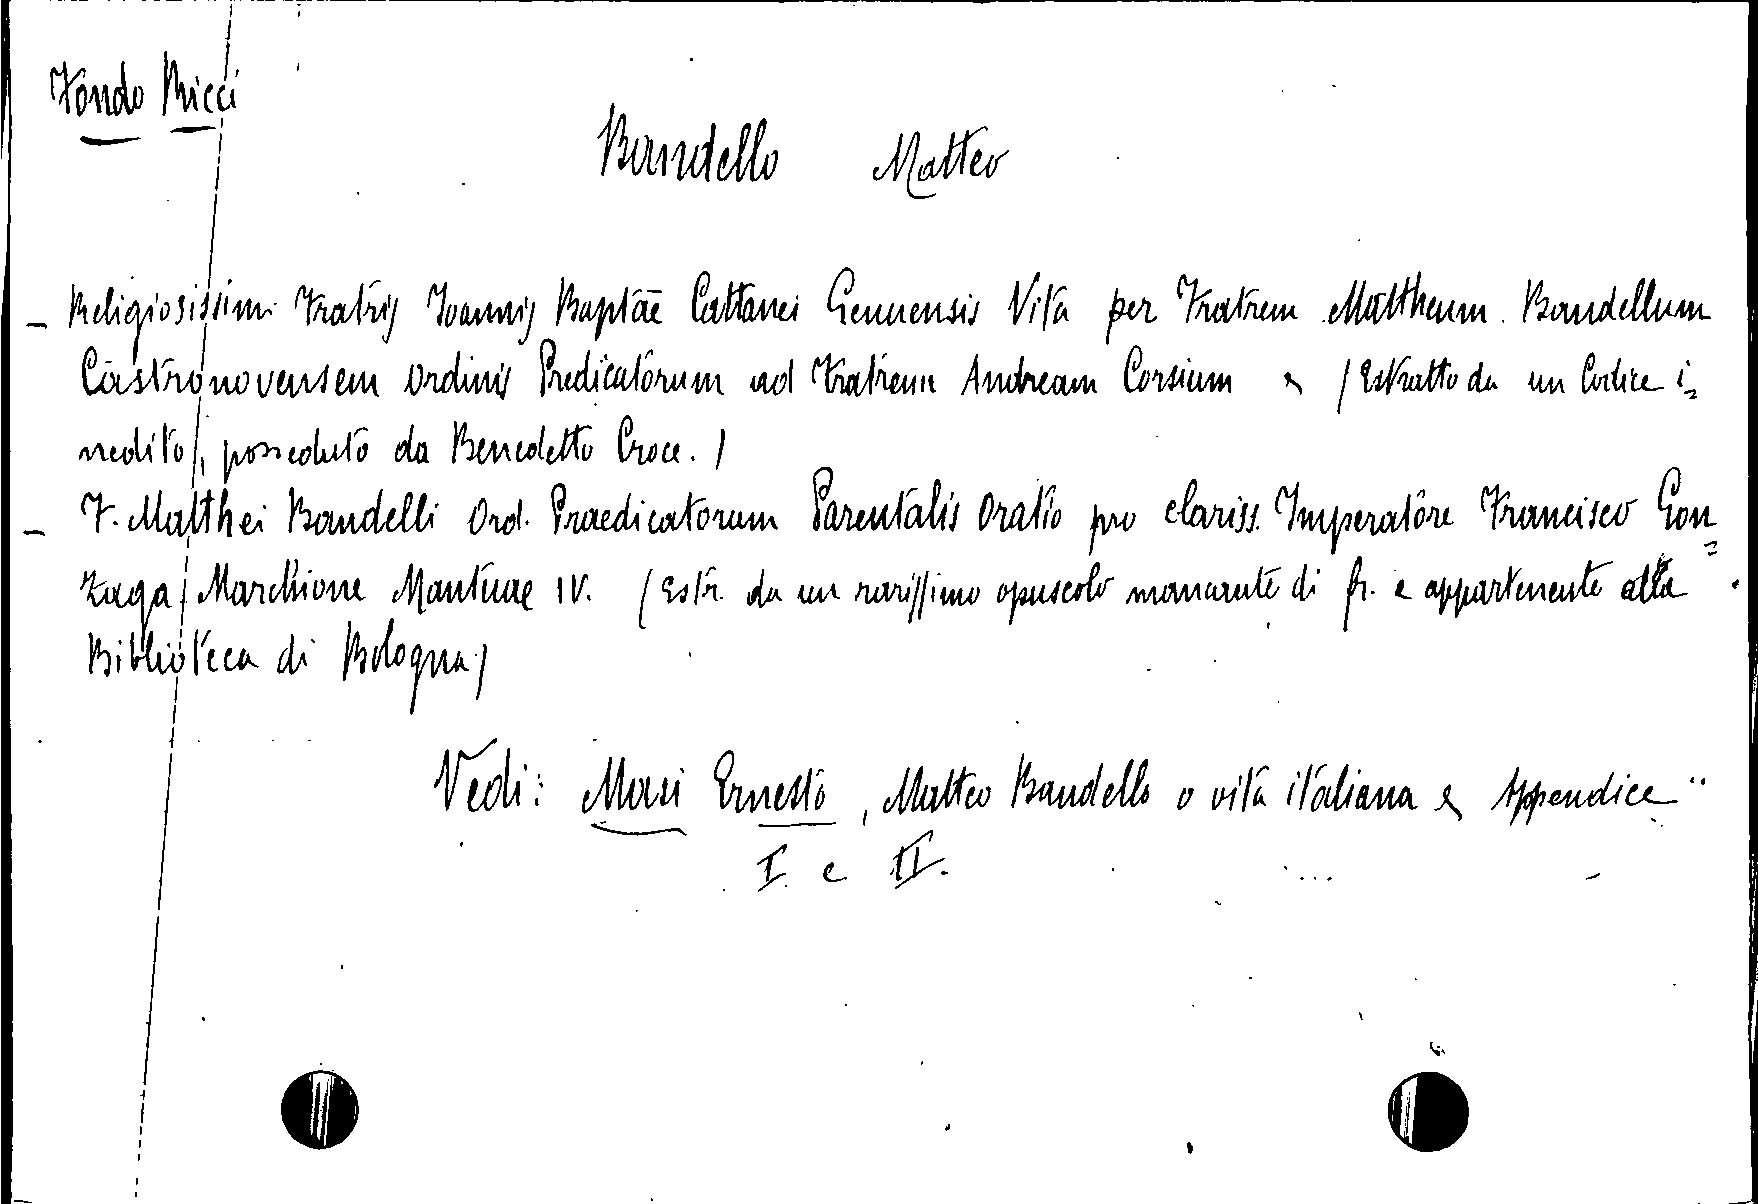 Fondo Ricci
Bandello Matteo
- Religiosissimi Fratris Ioannis Baptae Cattanei Genuensis Vita per Fratrem Mattheum Bandellum
Castronovensem Ordinis Predicatorum ad Fratrem Andream Corsium (Estratto da un Codice i=
nedito, posseduto da Benedetto Croce.)
- F. Matthei Bandelli Ord. Praedicatorum Parentalis Oratio pro clariss. Imperatore Francisco Gon=
zaga Marchione Mantuae IV. (Estr. da un rarissimo opuscolo mancante di fr. e appartenente alla
Biblioteca di Bologna)
Vedi: Masi Ernesto, Matteo Bandello o vita italiana Appendice"
I e II.